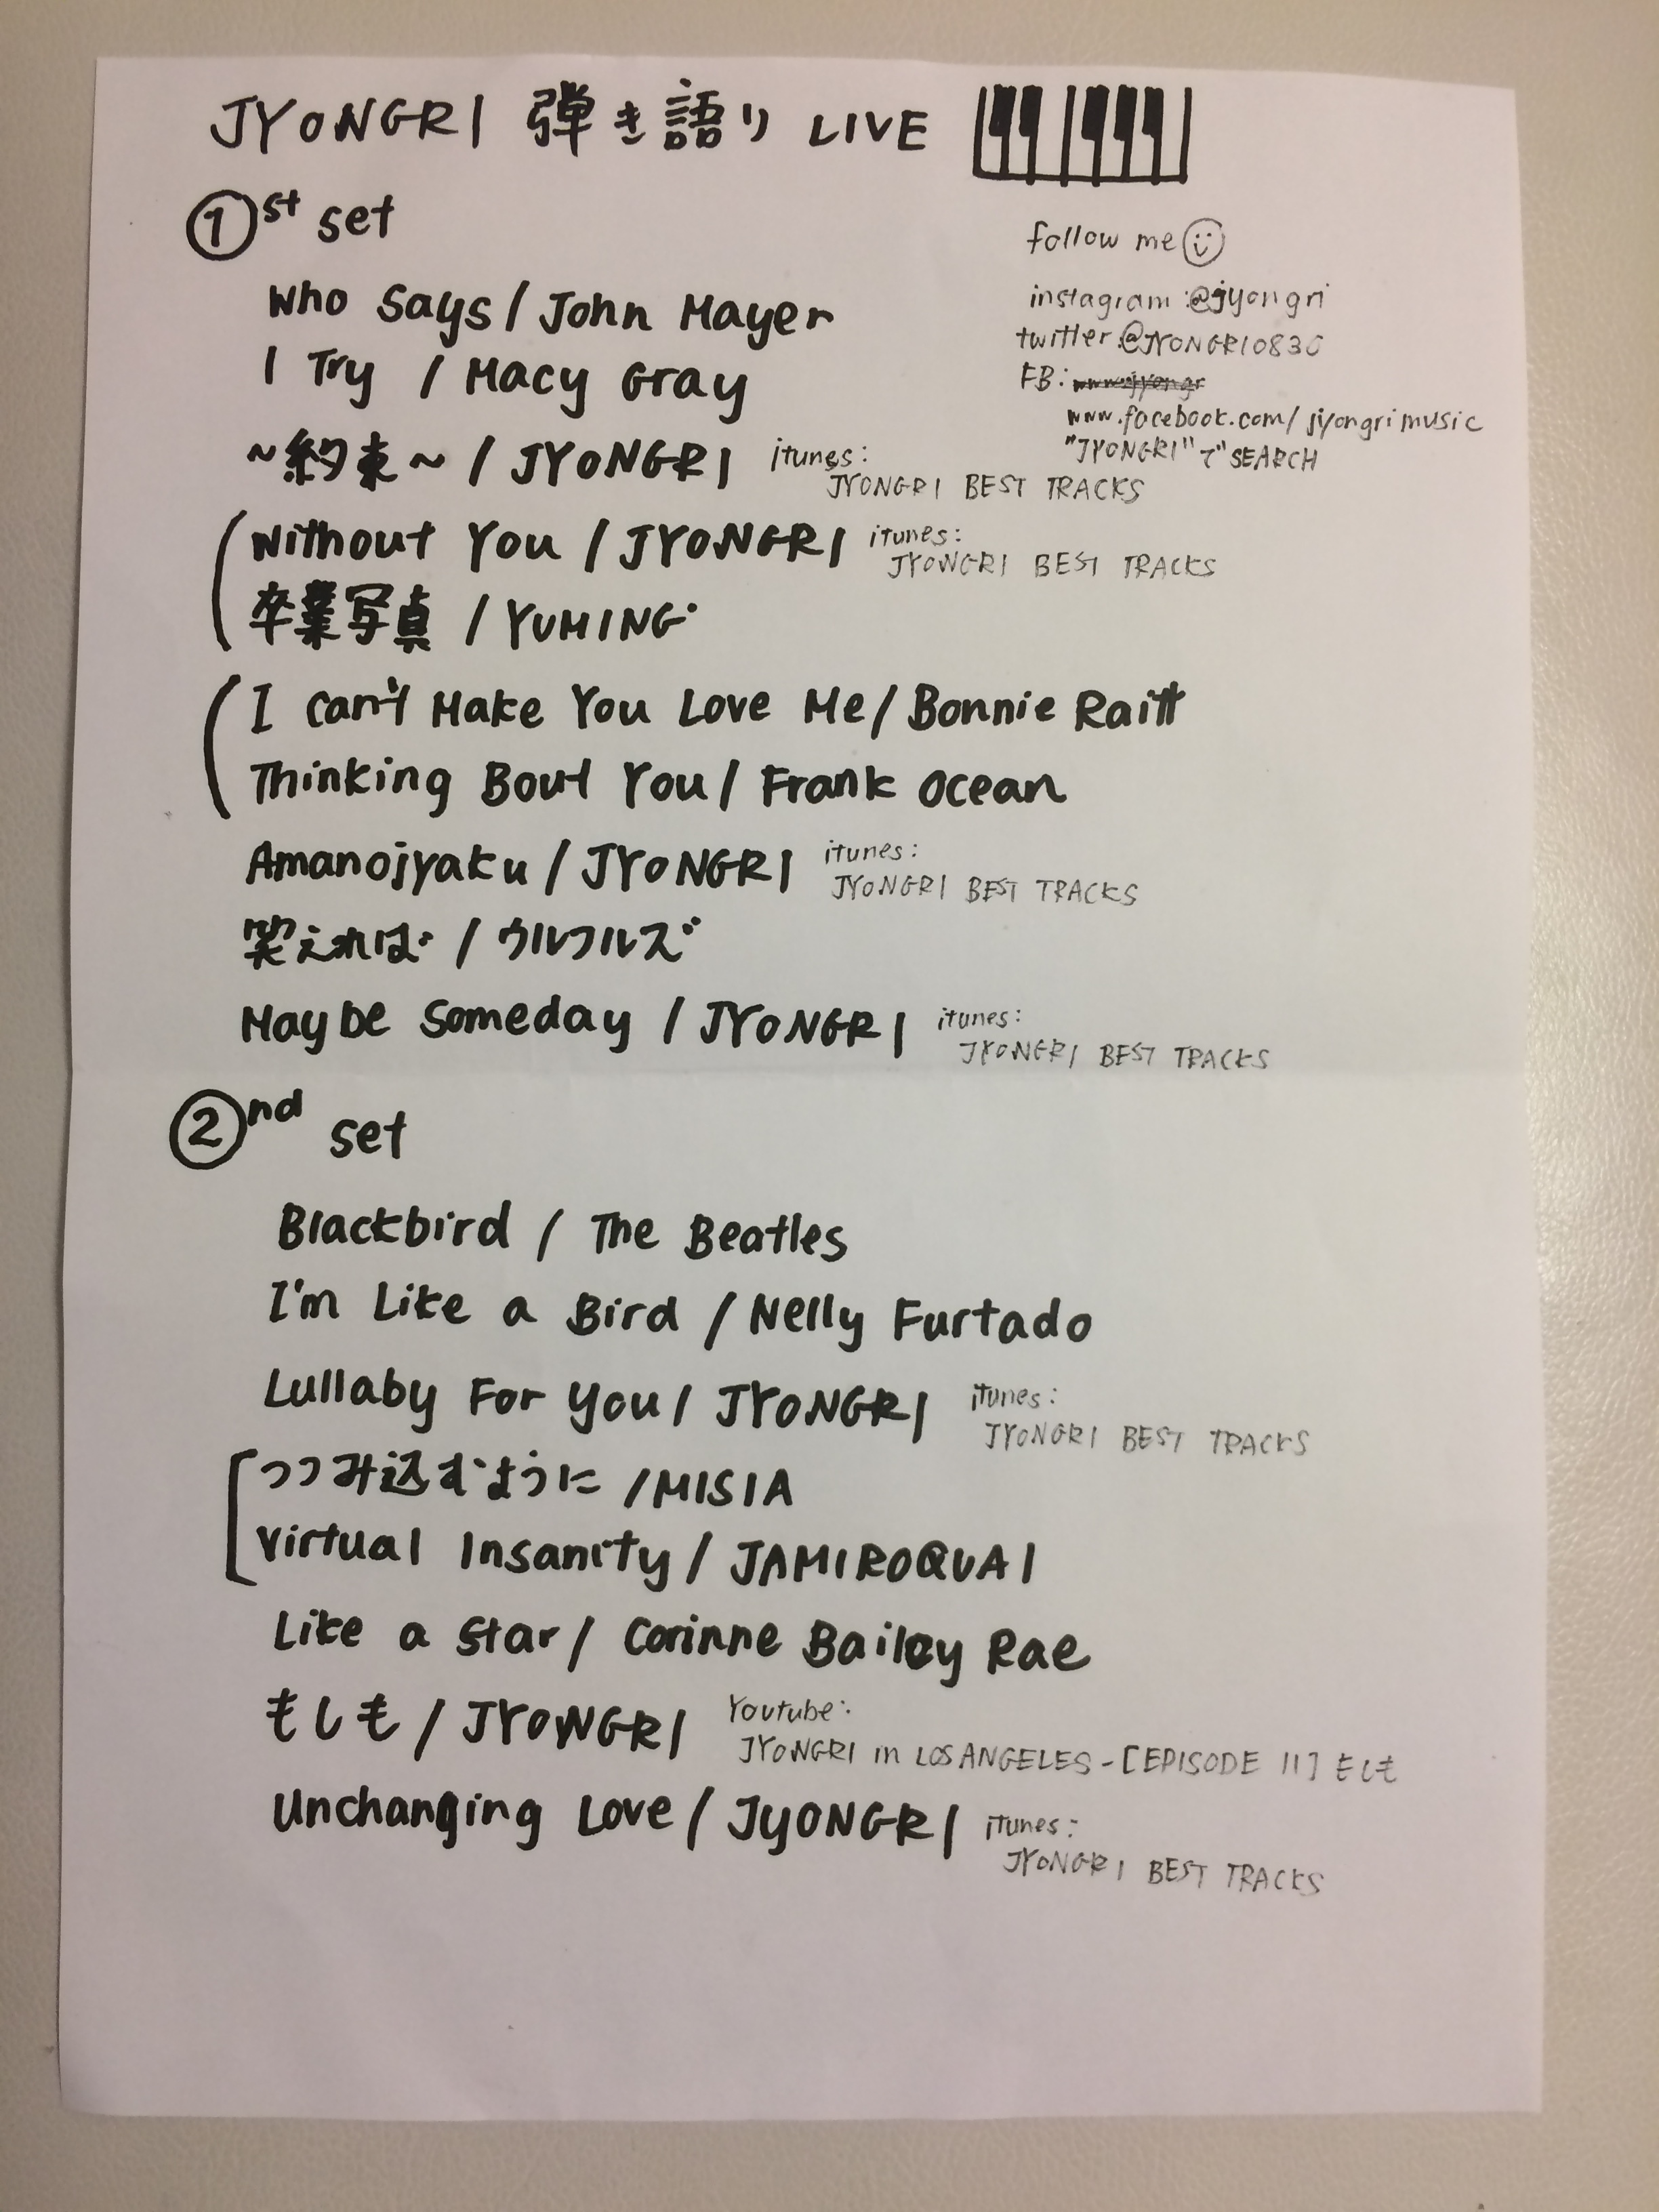 JYONGRI 弾き語り LIVE
①st set
follow me
instagram:@jyongri
twitter:@JYONGRI0830
FB:
www.facebook.com/jyongrimusic
"JYONGRI"で SEARCH
Who Says / John Mayer
I Try / Macy Gray
~約束~ / JYONGRI itunes:
JYONGRI BEST TRACKS
Without You / JYONGRI itunes:
JYONGRI BEST TRACKS
卒業写真 / YUMING
I Can't Make You Love Me / Bonnie Raitt
Thinking Bout You / Frank Ocean
Amanojyaku / JYONGRI itunes:
JYONGRI BEST TRACKS
笑えれば / ウルフルズ
Maybe Someday / JYONGRI itunes:
JYONGRI BEST TRACKS
②nd set
Blackbird / The Beatles
I'm Like a Bird / Nelly Furtado
Lullaby For You / JYONGRI itunes:
JYONGRI BEST TRACKS
つつみ込むように / MISIA
Virtual Insanity / JAMIROQUAI
Like a Star / Corinne Bailey Rae
もしも / JYONGRI Youtube:
JYONGRI in LOS ANGELES-[EPISODE 11] もしも
Unchanging Love / JYONGRI itunes:
JYONGRI BEST TRACKS